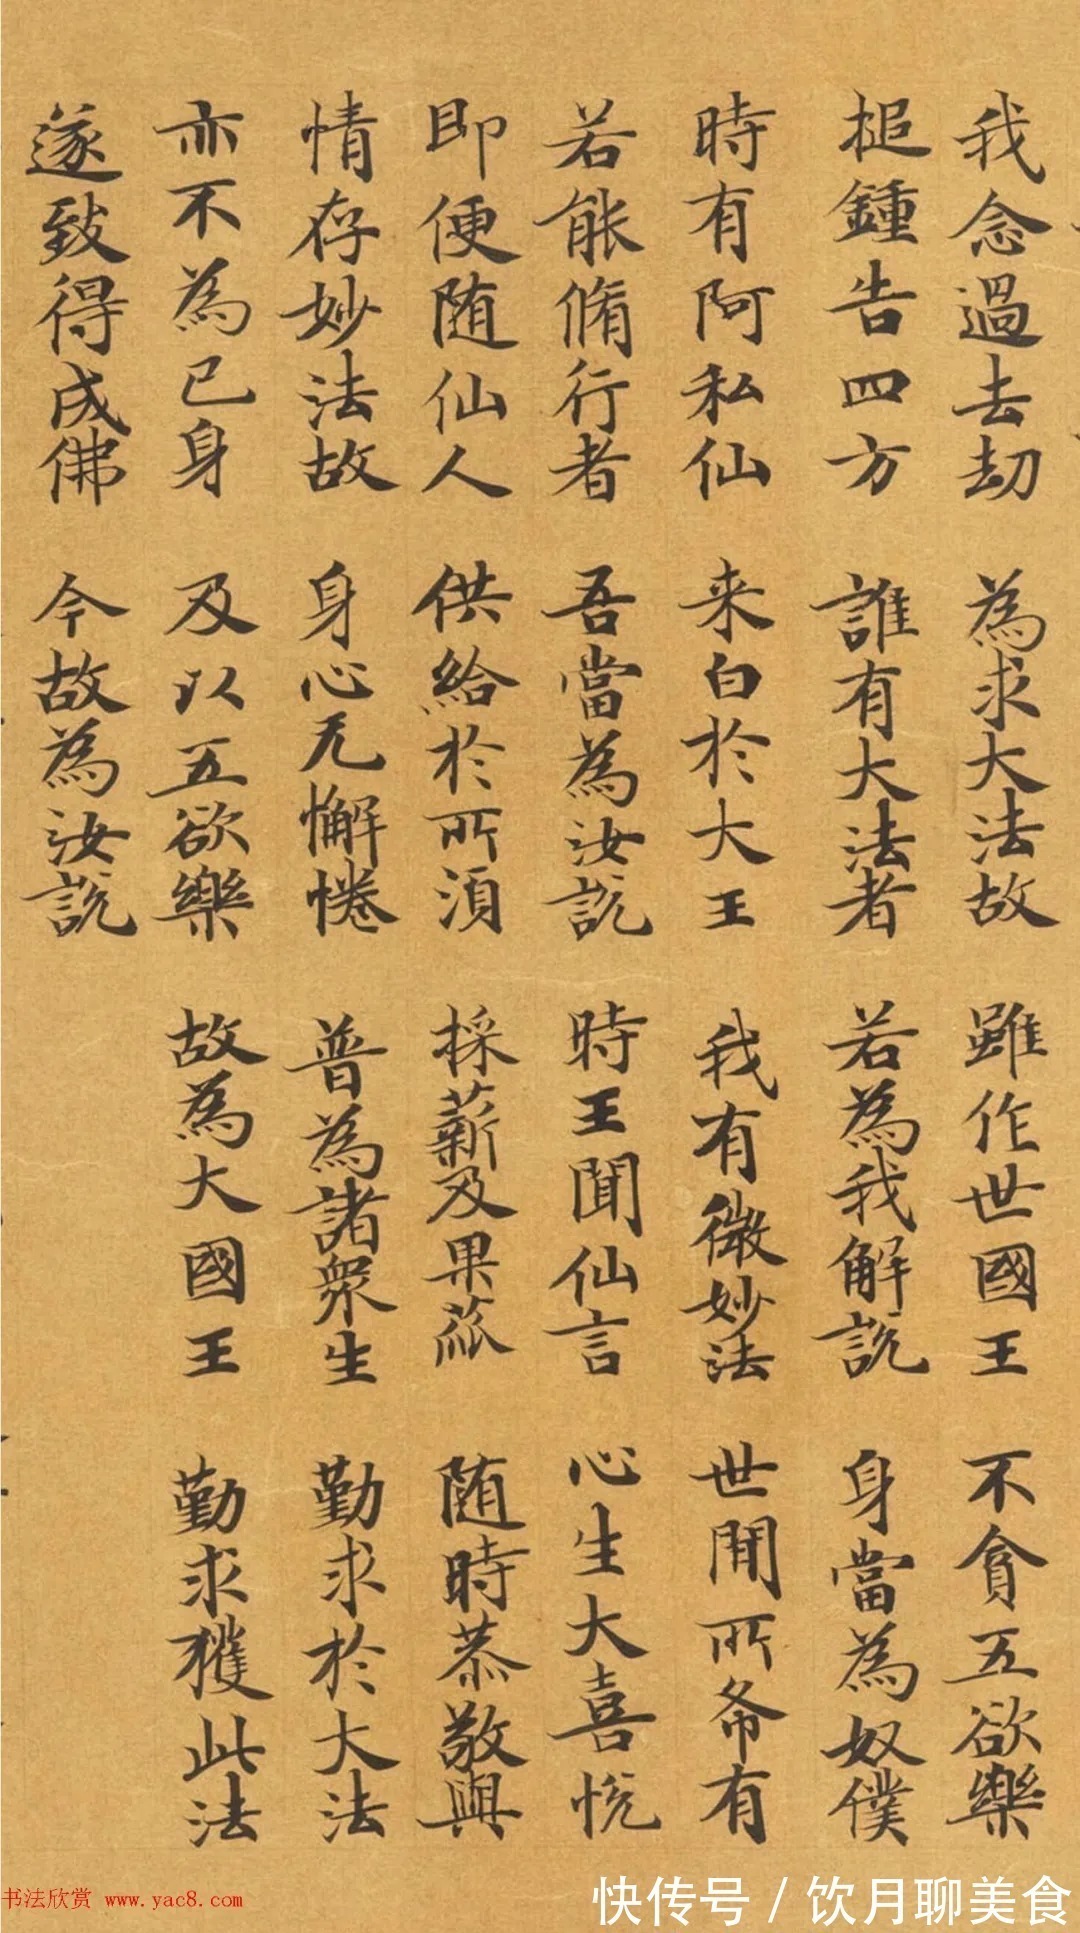 我念過去劫 為求大法故 雖作世國王 不貪五欲樂
槌鍾告四方 誰有大法者 若為我解說 身當為奴僕
時有阿私仙 来白於大王 我有微妙法 世間所希有
若能脩行者 吾當為汝說 時王聞仙言 心生大喜悅
即便随仙人 供給於所須 採薪及果蓏 随時恭敬與
情存妙法故 身心无懈惓 普為諸衆生 勤求於大法
亦不為己身 及以五欲樂 故為大國王 勤求獲此法
遂致得成佛 今故為汝說
书法欣赏 www.yac8.com
快传号 / 饮月聊美食